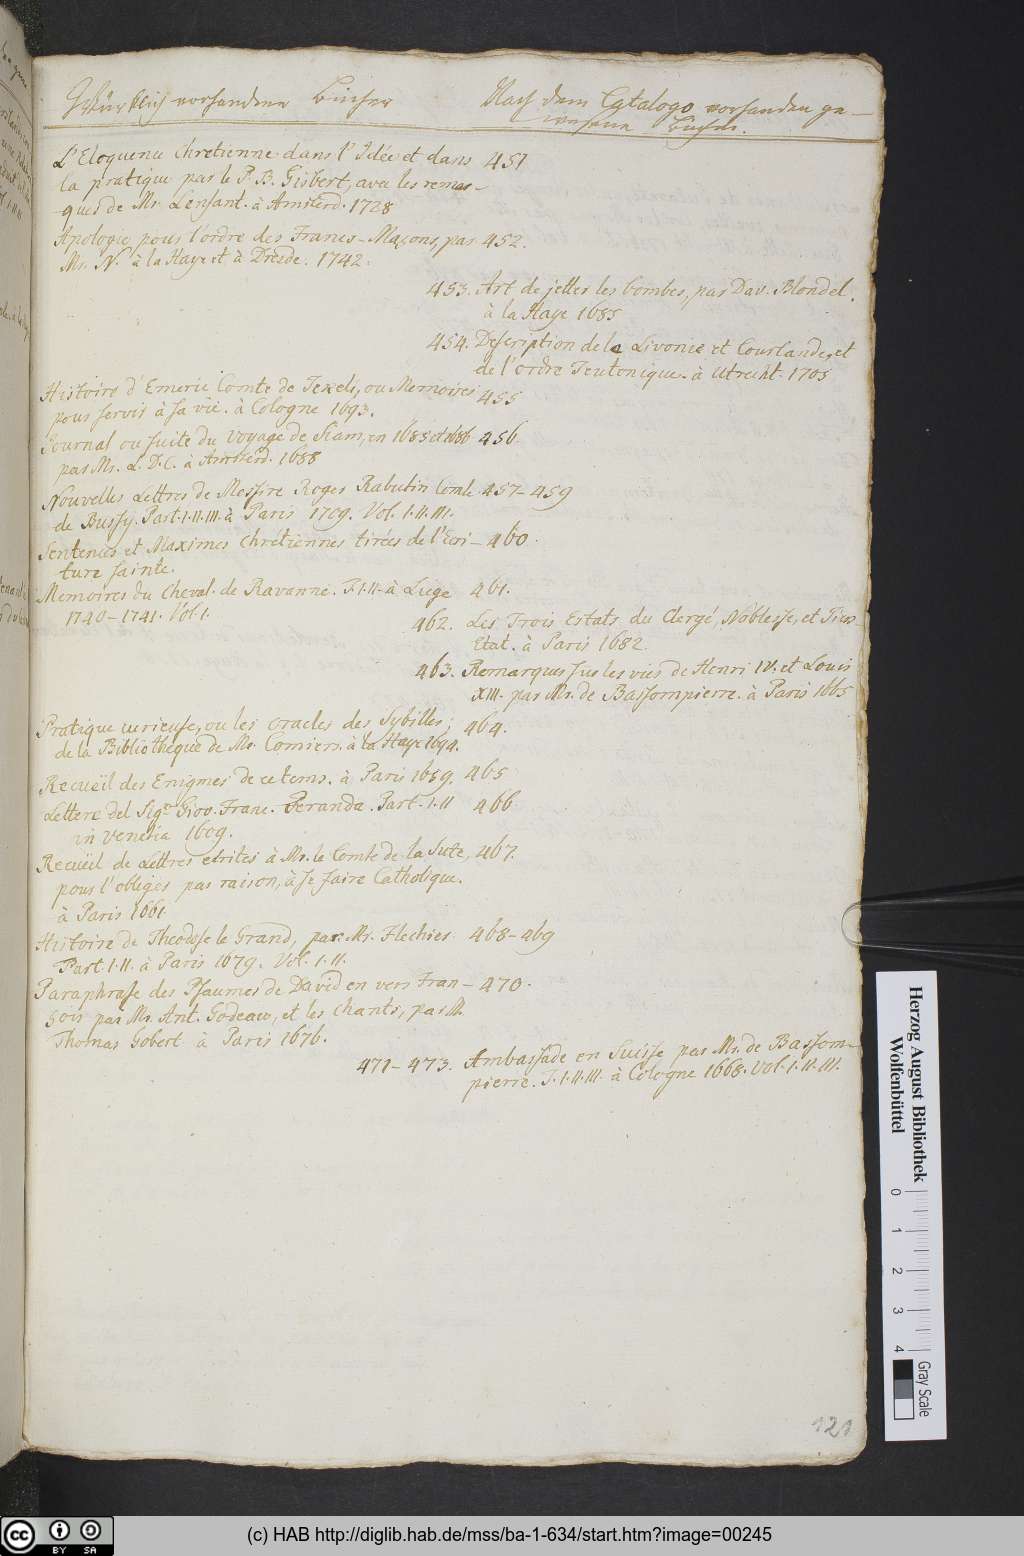 Würklich vorhandene Bücher
Nach dem Catalogo vorhanden ge-
wesene Bücher.
L'Eloquence Chretienne dans l'Idée et dans 451
la pratique par le P. B. Gisbert, avec les remar-
ques de Mr. Lenfant. à Amsterd. 1728
Apologie pour l'ordre des Francs-Maçons, par 452.
Mr. N. à la Haye et à Dresde. 1742.
453. Art de jetter les bombes, par Dav. Blondel.
à la Haye 1685
454. Description de la Livonie et Courlande, et
de l'ordre Teutonique. à Utrecht. 1705
Histoire d'Emeric Comte de Tekels, ou Memoires 455
pour servir à sa vie. à Cologne 1693.
Journal ou suite du Voyage de Siam, en 1685 et 1686 456.
par Mr. L. D. C. à Amsterd. 1688
Nouvelles Lettres de Messire Roger Rabutin Comte 457-459
de Bussy. Part. I. II. III. à Paris 1709. Vol. I. II. III.
Sentences et Maximes Chrétiennes tirées de l'Ecri- 460.
ture sainte.
Memoires du Cheval. de Ravanne. T. I. II. à Liege 461.
1740-1741. Vol. 1.
462. Les Trois Estats du Clergé, Noblesse, et Tiers
Etat. à Paris 1682.
463. Remarques sur les vies de Henri IV. et Louis
XIII. par Mr. de Bassompierre. à Paris 1665
Pratique curieuse, ou les oracles des Sybilles; 464.
de la Bibliotheque de Mr. Comiers. à la Haye 1694.
Recueil des Enigmes de ce tems. à Paris 1659. 465
Lettere del Sigr. Giov. Franc. Peranda. Part. I. II 466
in Venetia 1609.
Recueil de Lettres ecrites à Mr. le Comte de la Suze, 467.
pour l'obliger par raison, à se faire Catholique.
à Paris 1661
Histoire de Theodose le Grand, par Mr. Flechier. 468-469
Part. I. II. à Paris 1679. Vol. I. II.
Paraphrase des Psaumes de David en vers Fran- 470.
çois par Mr. Ant. Godeau, et les chants, par M.
Thomas Gobert à Paris 1676.
471-473. Ambassade en Suisse par Mr. de Bassom-
pierre. T. I. II. III. à Cologne 1668. Vol. I. II. III.
121
Herzog August Bibliothek
Wolfenbüttel
0 1 2 3 4
Gray Scale
cc BY SA
(c) HAB http://diglib.hab.de/mss/ba-1-634/start.htm?image=00245